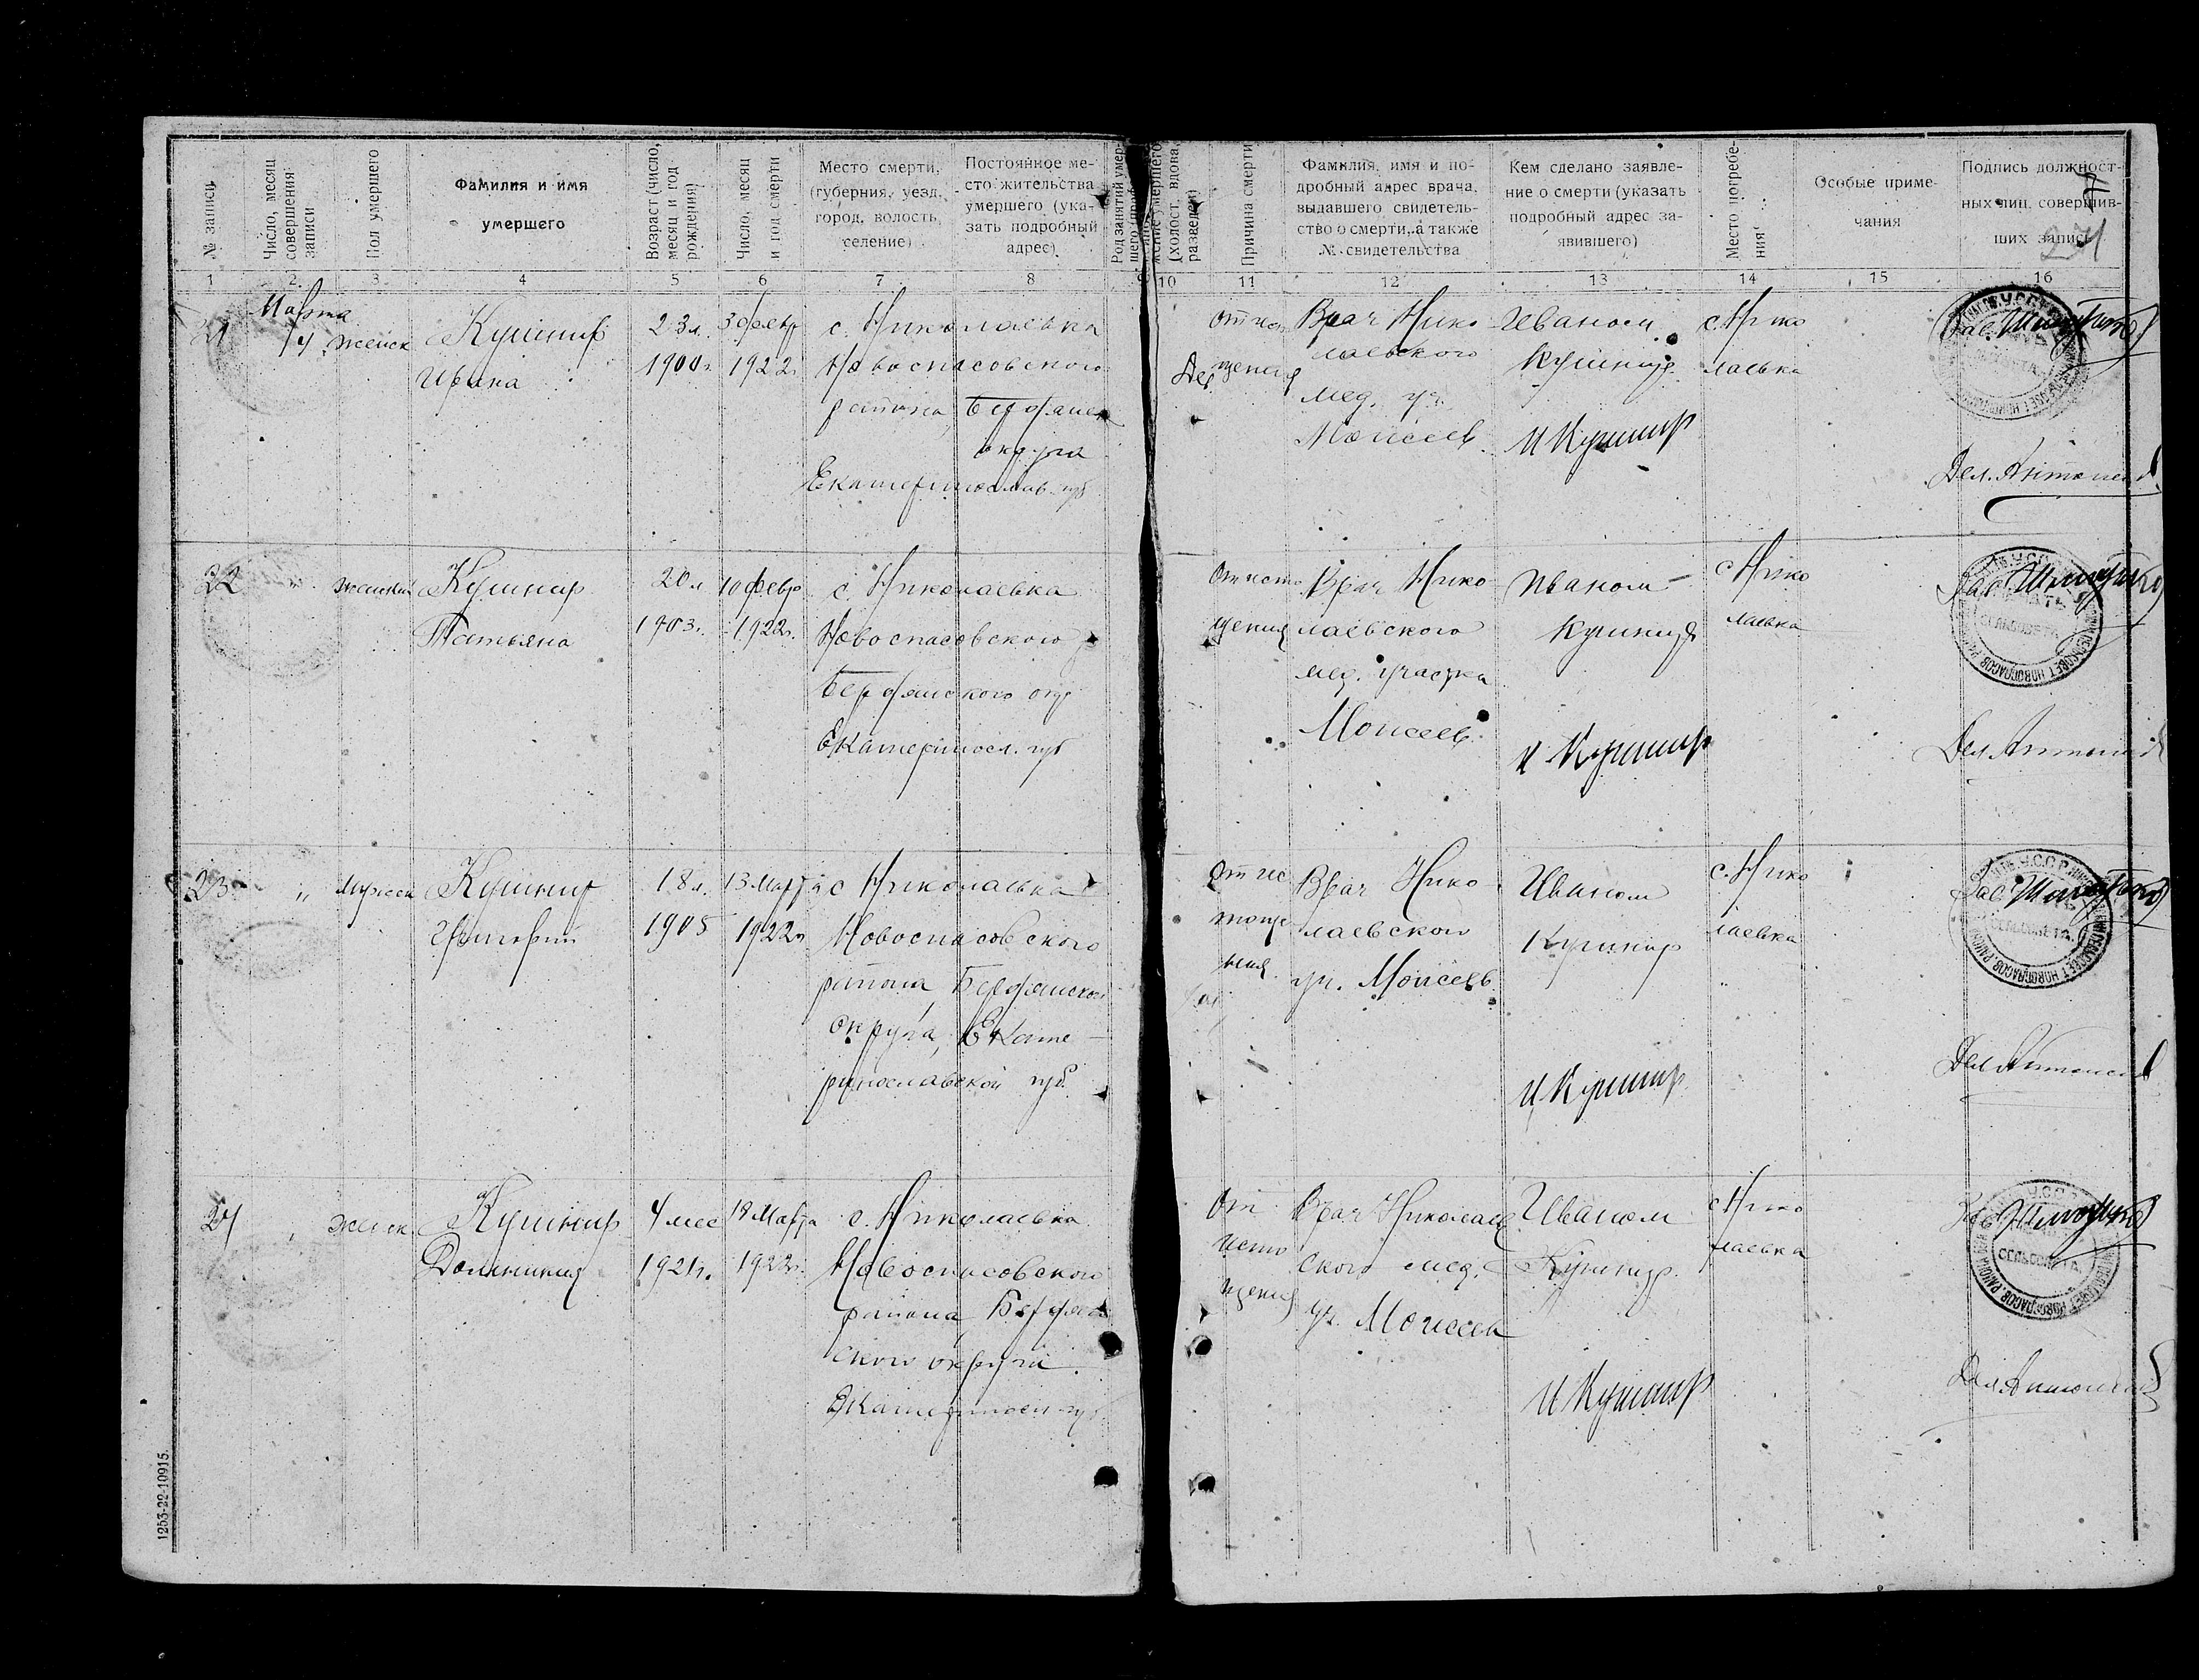 № записи
Число, месяц совершения записи
Пол умершего
Фамилия и имя
умершего
Возраст (число, месяц и год рождения)
Число, месяц и год смерти
Место смерти,
(губерния, уезд,
город, волость,
селение)
Постоянное ме-
сто жительства
умершего (ука-
зать подробный
адрес)
(холост, вдова, разведен)
Причина смерти
Фамилия, имя и по-
дробный адрес врача,
выдавшего свидетель-
ство о смерти, а также
№ свидетельства
Кем сделано заявле-
ние о смерти (указать
подробный адрес за-
явившего)
Место погребе-
ния
Особые приме-
чания
Подпись должност-
ных лиц, соверши
ших запись
1 2 3 4 5 6 7 8 9 10 11 12 13 14 15 16
21
Марта
14
Женск
Кушнир
Ирина
23 л.
1900 г.
3 февр
1922 г.
с. Николаевка
Новоспасовского
района, Бердянск
округа
Екатеринослав. губ
Врач Нико
лаевского
мед. уч.
Моисеев
Иваном
Кушнир
И Кушнир
с. Нико
лаевка
Зав.
Дел.
22
"
женский
Кушнир
Татьяна
20 л
1903 г.
10 февр
1922 г.
с. Николаевка
Новоспасовского р
Бердянского окр
Екатериносл. губ
От исто
щения
Врач Нико
лаевского
мед. участка
Моисеев
Иваном
Кушнир
И Кушнир
с Нико
лаевка
Зав.
Дел
23
"
Мужск
Кушнир
Григорий
18 л.
1905
13 Марта
1922 г
с Николаевка
Новоспасовского
района, Бердянского
округа, Екате-
ринославской губ.
От ис
тоще
ния
Врач Нико
лаевского
уч. Моисеев
Иваном
Кушнир
И Кушнир
с. Нико
лаевка
Зав
Дел
24
Женск
Кушнир
Домникия
4 мес
1921 г.
18 Марта
1922 г.
с. Николаевка
Новоспасовского
района, Бердян
ского округа
Екатериносл губ
От
исто
щения
Врач Николаев
ского мед.
уч. Моисеев
Иваном
Кушнир
И Кушнир
с Нико
лаевка
СЕЛЬСОВЕТА
1253-22-10915.